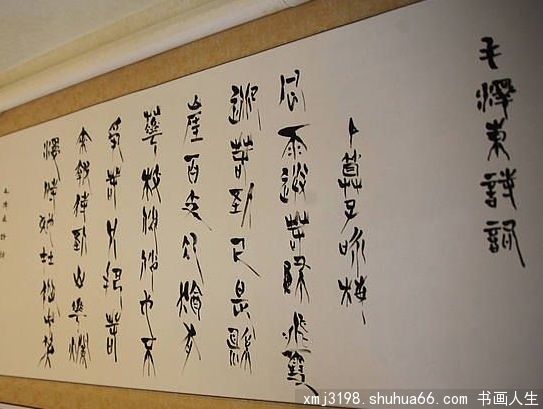 毛澤東詩詞
卜算子咏梅
风雨送春歸飛雪
迎春到已是懸
崖百丈冰猶有
華枝俏俏也不
爭春只把春
來報待到山華爛
漫時她在叢中笑
xmj3198.shuhua66.com 书画人生